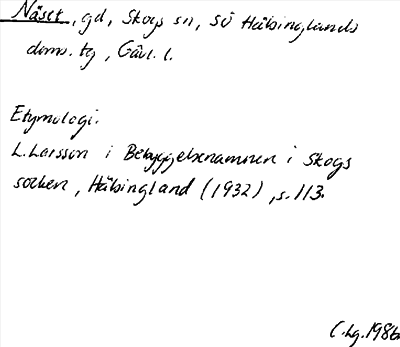 Näset, gd, Skogs sn, Sö Hälsinglands
doms. tg, Gävl. l.
Etymologi:
L. Larsson i Bebyggelsenamnen i Skogs
socken, Hälsingland (1932), s. 113.
C. Lg. 1986